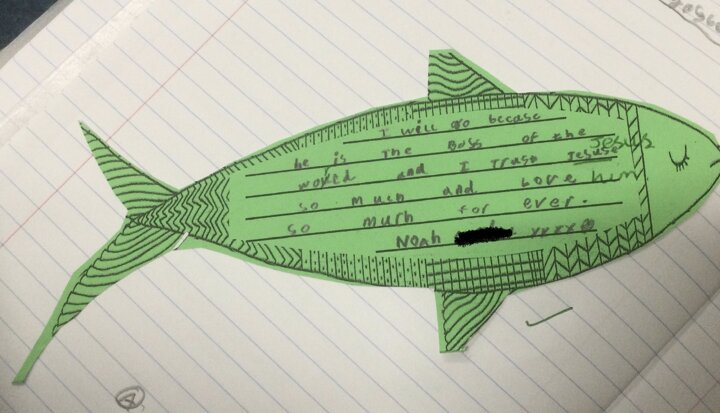 I will go becase
he is The Boss of the
world and I Trust Jesuse
Jesus
so much and Love him
so much for ever.
Noah xxxx
4